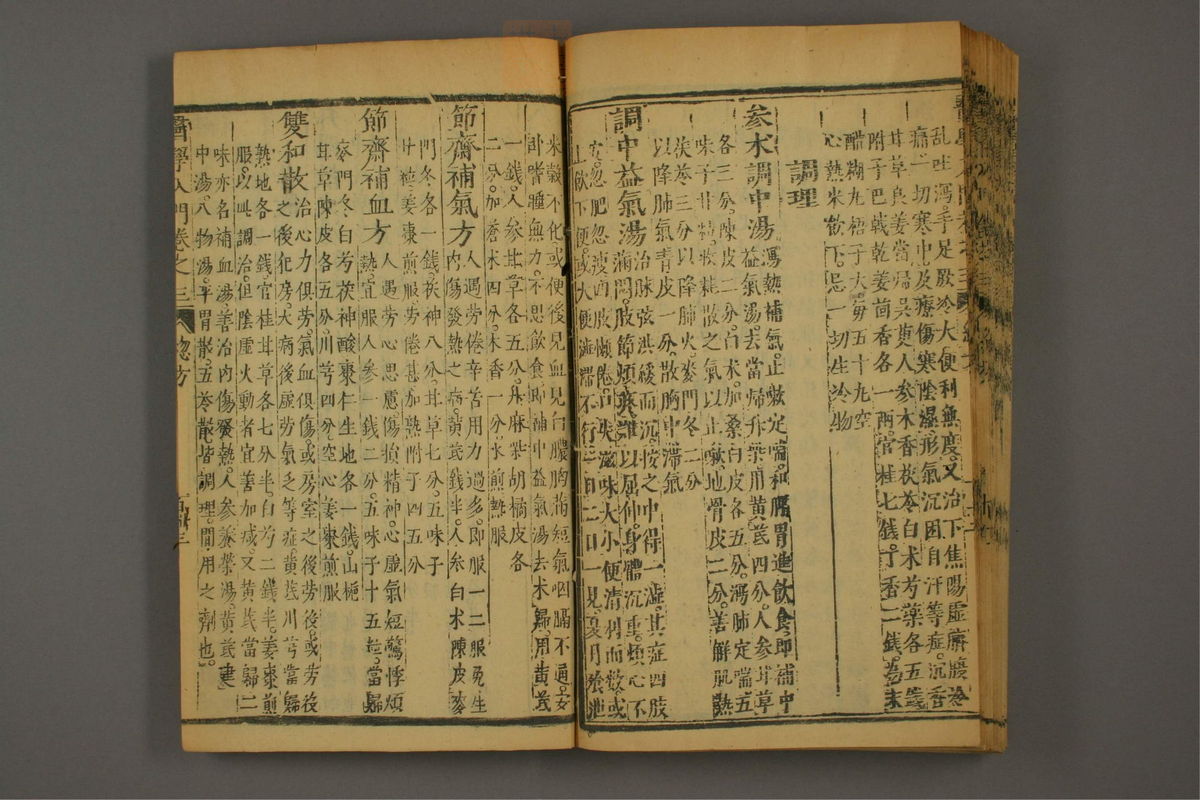 亂吐瀉手足厥冷大便利無度又治下焦陽虛臍腹冷
痛一切寒中及療傷寒陰濕形氣沉困自汗等症沉香
甘草良姜當歸吳茰人参木香茯苓白术芍藥各五錢
附子巴戟乾姜茴香各一兩官桂七錢丁香二錢為末
醋糊丸梧子大每五十丸空
心熱米飲下忌一切生冷物
調理
参术調中湯瀉熱補氣止嗽定喘和脾胃進飲食即補中
益氣湯去當歸升柴用黄芪四分人参甘草
各三分陳皮二分白术加桑白皮各五分瀉肺定喘五
味子廿粒收耗散之氣以止嗽地骨皮二分善解肌熱
茯苓三分以降肺火麥門冬二分
以降肺氣青皮一分散胸中滞氣
調中益氣湯治脉弦洪緩而沉按之中得一澁其症四肢
滿悶肢節煩疼難以屈伸身體沉重煩心不
安忽肥忽瘦四肢懶倦口失滋味大小便清利而數或
上飲下便或大便澁滯不行一二日一見夏月飱泄
米穀不化或便後見血見白膿胸滿短氣咽膈不通安
卧嗜睡無力不思飲食即補中益氣湯去术歸用黄芪
一錢人参甘草各五分升麻柴胡橘皮各
二分加蒼术四分木香一分水煎熱服
節齋補氣方人遇勞倦辛苦用力過多即服一二服免生
內傷發熱之病黄芪錢半人参白术陳皮麥
門冬各一錢茯神八分甘草七分五味子
廿粒姜棗煎服勞倦甚加熟附子四五分
節齋補血方人遇勞心思慮傷損精神心虛氣短驚悸煩
熱宜服人參一錢二分五味子十五粒當歸
麥門冬白芍茯神酸棗仁生地各一錢山梔
甘草陳皮各五分川芎四分空心姜棗煎服
雙和散治心力俱劳氣血俱傷或房室之後劳役或劳役
之後犯房大病後虛劳氣乏等症黄芪川芎當歸
熟地各一錢官桂甘草各七分半白芍二錢半姜棗煎
服以此調治但陰虛火動者宜善加减又黄芪當歸二
味亦名補血湯善治內傷發熱人参養榮湯黄芪建
中湯八物湯平胃散五苓散皆調理間用之劑也
醫學入門卷之三 總方